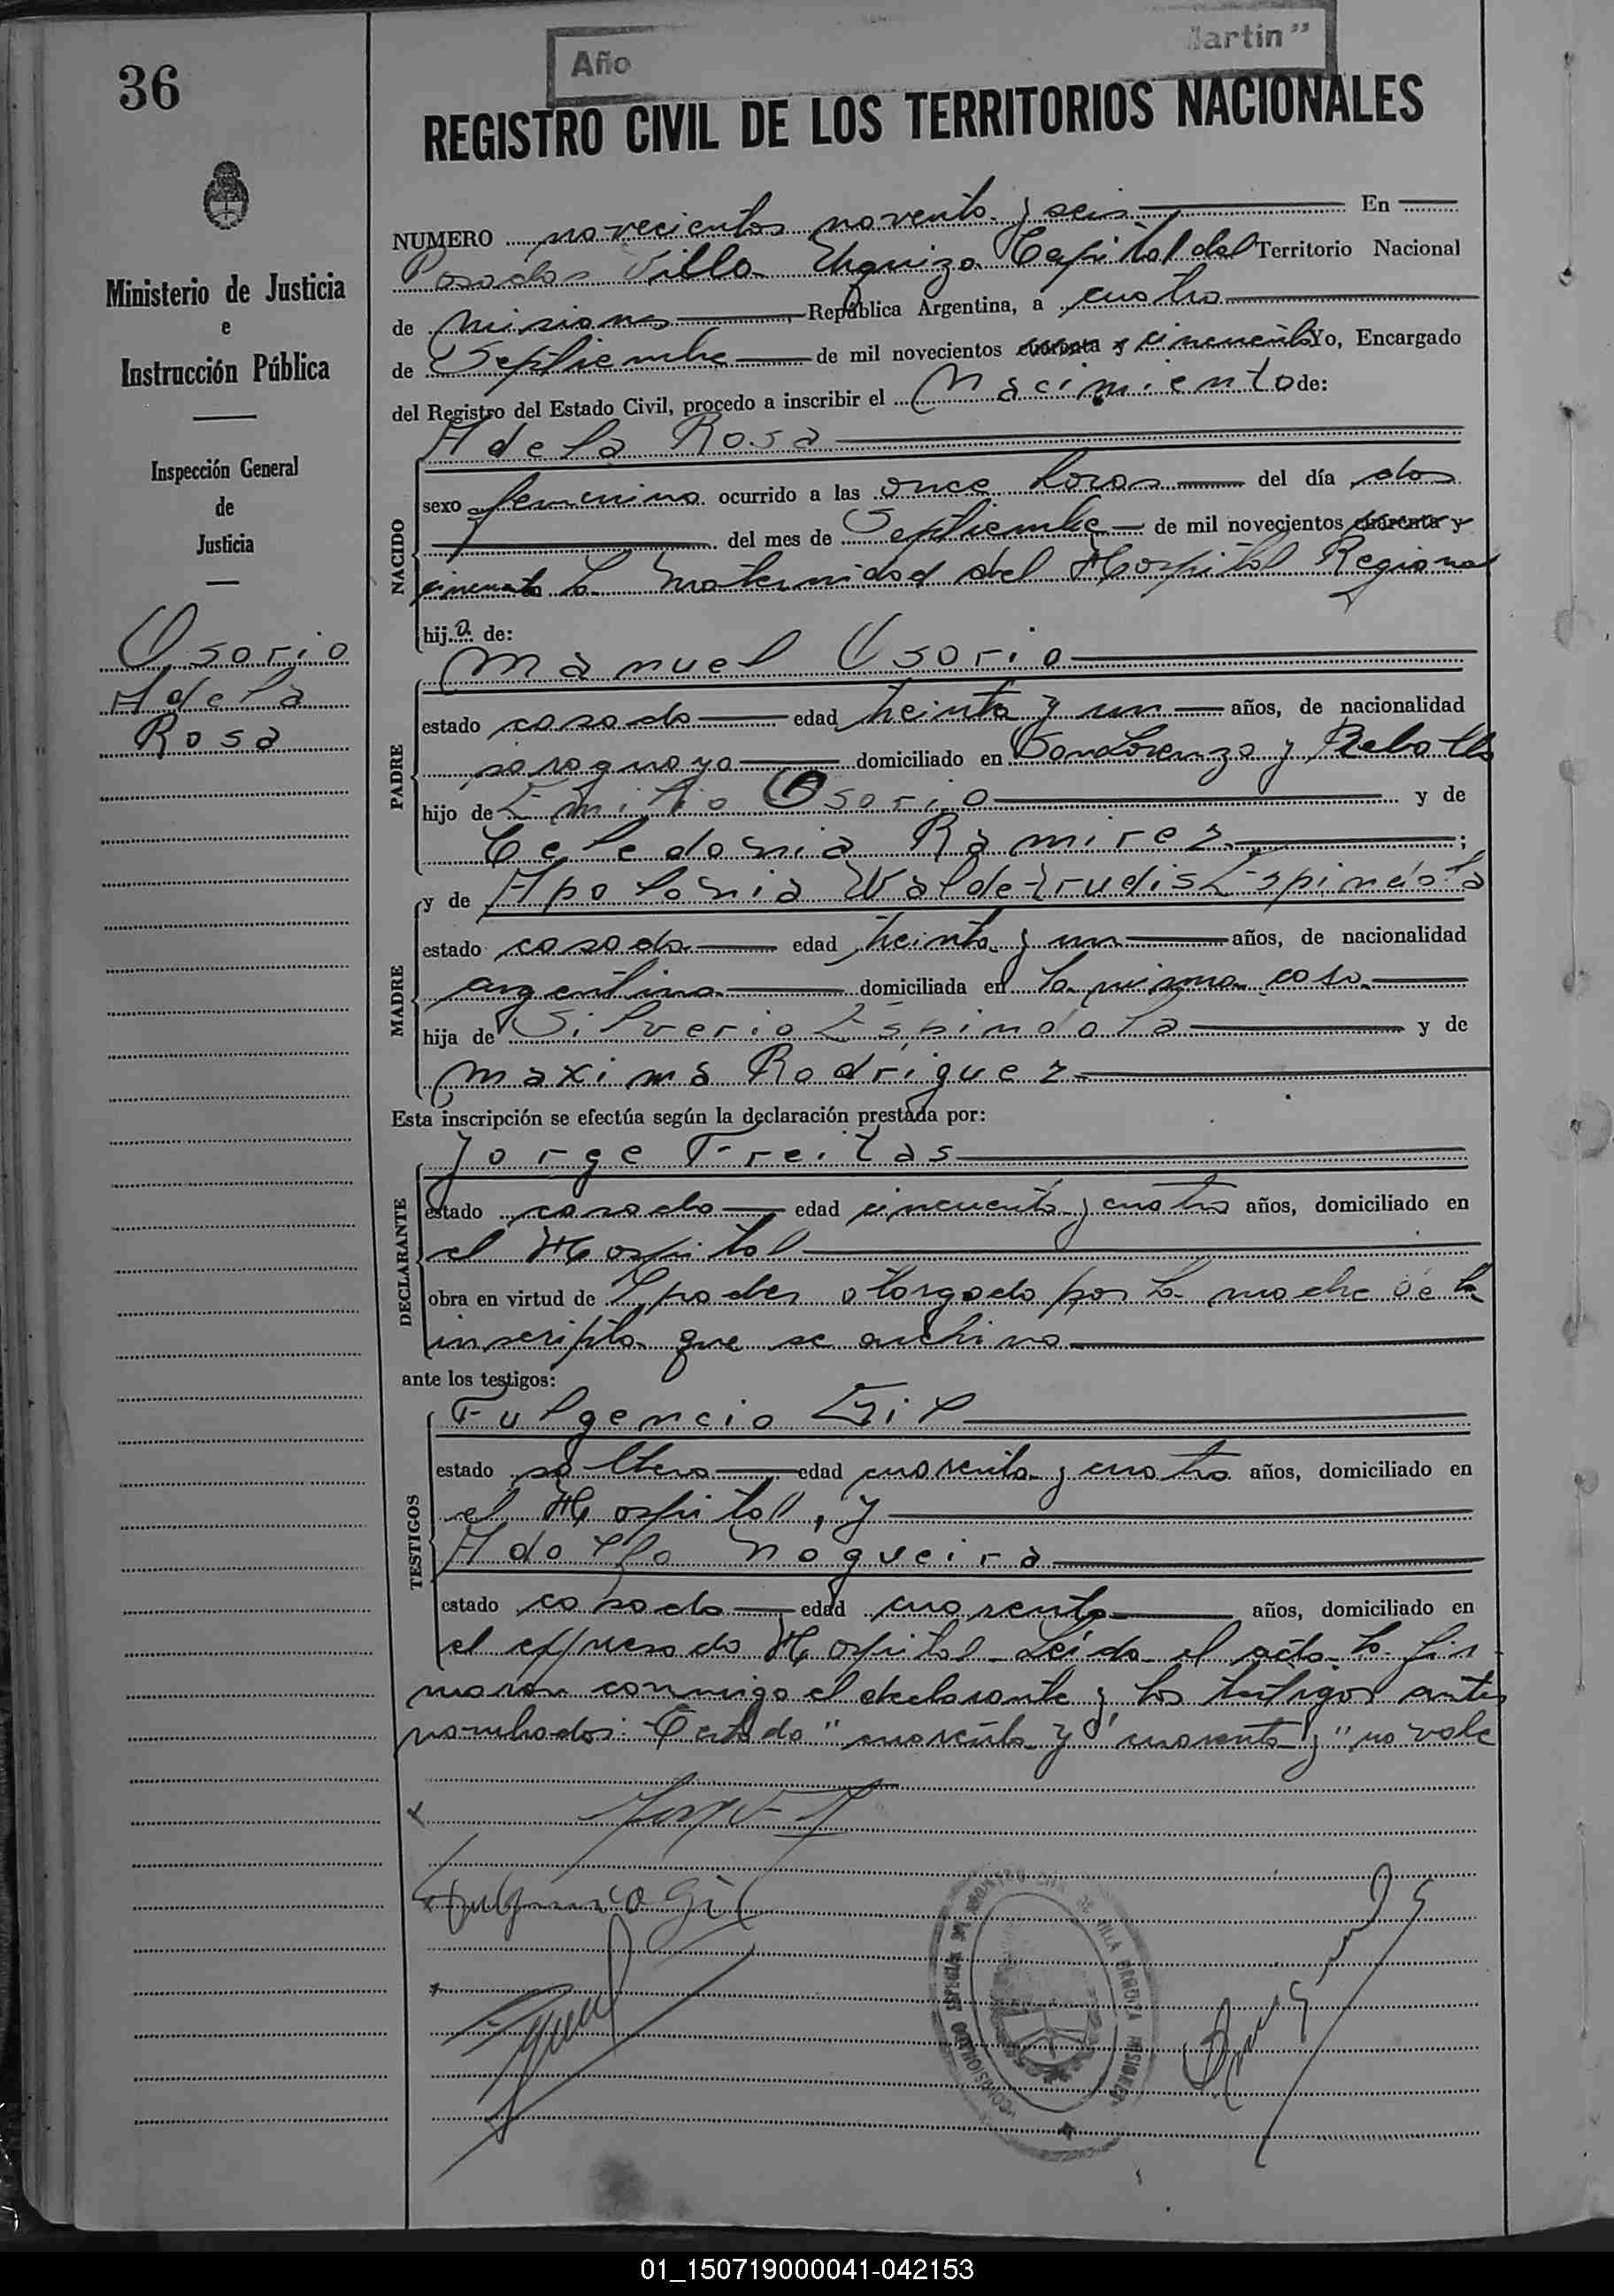 Año Martin"
36
REGISTRO CIVIL DE LOS TERRITORIOS NACIONALES
Ministerio de Justicia
e
Instrucción Pública
Inspección General
de
Justicia
Osorio
Adela
Rosa
NUMERO novecientos noventa y seis En
Posadas Villa Urquiza Capital del Territorio Nacional
de Misiones, República Argentina, a cuatro
de Septiembre de mil novecientos cuarenta y cincuenta Yo, Encargado
del Registro del Estado Civil, procedo a inscribir el Nacimiento de:
Adela Rosa
NACIDO
sexo femenino ocurrido a las once horas del día dos
del mes de Septiembre de mil novecientos cuarenta y
cincuenta La Maternidad del Hospital Regional
hija de:
Manuel Osorio
PADRE
estado casado edad treinta y un años, de nacionalidad
paraguaya domiciliado en San Lorenzo y
hijo de Emilio Osorio y de
Celedonia Ramirez;
y de Apolonia Waldetrudis Espindola
MADRE
estado casada edad treinta y un años, de nacionalidad
argentina domiciliada en la misma casa
hija de Silverio Espindola y de
Maxima Rodriguez
Esta inscripción se efectúa según la declaración prestada por:
Jorge Freitas
DECLARANTE
estado casado edad cincuenta y cuatro años, domiciliado en
el Hospital
obra en virtud de poder otorgado por la madre de la
inscripta que se archiva
ante los testigos:
Fulgencio Gil
TESTIGOS
estado soltero edad cuarenta y cuatro años, domiciliado en
el Hospital, y
Adolfo Nogueira
estado casado edad cuarenta años, domiciliado en
el expresado Hospital. Leida el acta la fir
maron conmigo el declarante y los testigos antes
nombrados: Testado "cuarenta y" cuarenta y" no vale
Fulgencio Gil
VILLA URQUIZA MISIONES
01_150719000041-042153